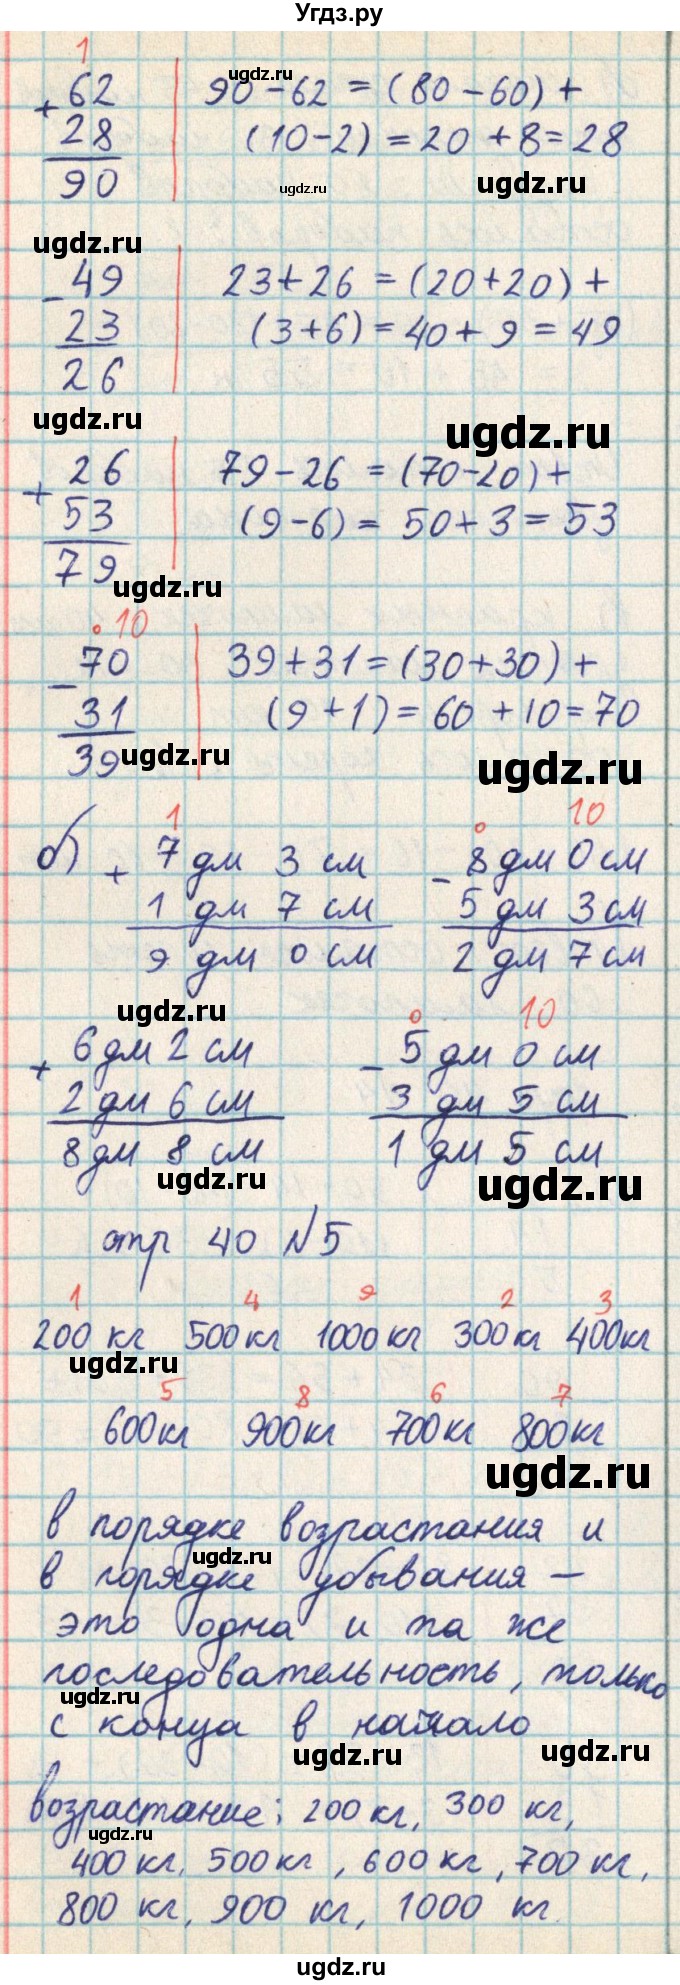 Угдз.ру
1
+ 62 | 90 - 62 = (80 - 60) +
28 | (10 - 2) = 20 + 8 = 28
90
ugdz.ru
ugdz.ru
ugdz.ru
ugdz.ru
- 49 | 23 + 26 = (20 + 20) +
23 | (3 + 6) = 40 + 9 = 49
26
ugdz.ru
ugdz.ru
+ 26 | 79 - 26 = (70 - 20) +
53 | (9 - 6) = 50 + 3 = 53
79
ugdz.ru
10
- 70 | 39 + 31 = (30 + 30) +
31 | (9 + 1) = 60 + 10 = 70
39
ugdz.ru
ugdz.ru
1 10
б) + 7 дм 3 см - 8 дм 0 см
1 дм 7 см 5 дм 3 см
9 дм 0 см 2 дм 7 см
ugdz.ru
10
+ 6 дм 2 см - 5 дм 0 см
2 дм 6 см 3 дм 5 см
8 дм 8 см 1 дм 5 см
ugdz.ru
ugdz.ru
стр 40 №5
1 4 9 2 3
200 кг 500 кг 1000 кг 300 кг 400 кг
ugdz.ru
5 8 6 7
600 кг 900 кг 700 кг 800 кг
ugdz.ru
в порядке возрастания и
ugdz.ru
в порядке убывания –
это одна и та же
последовательность, только
ugdz.ru
с конца в начало
ugdz.ru
ugdz.ru
возрастание: 200 кг, 300 кг,
ugdz.ru
400 кг, 500 кг, 600 кг, 700 кг,
800 кг, 900 кг, 1000 кг.
ugdz.ru